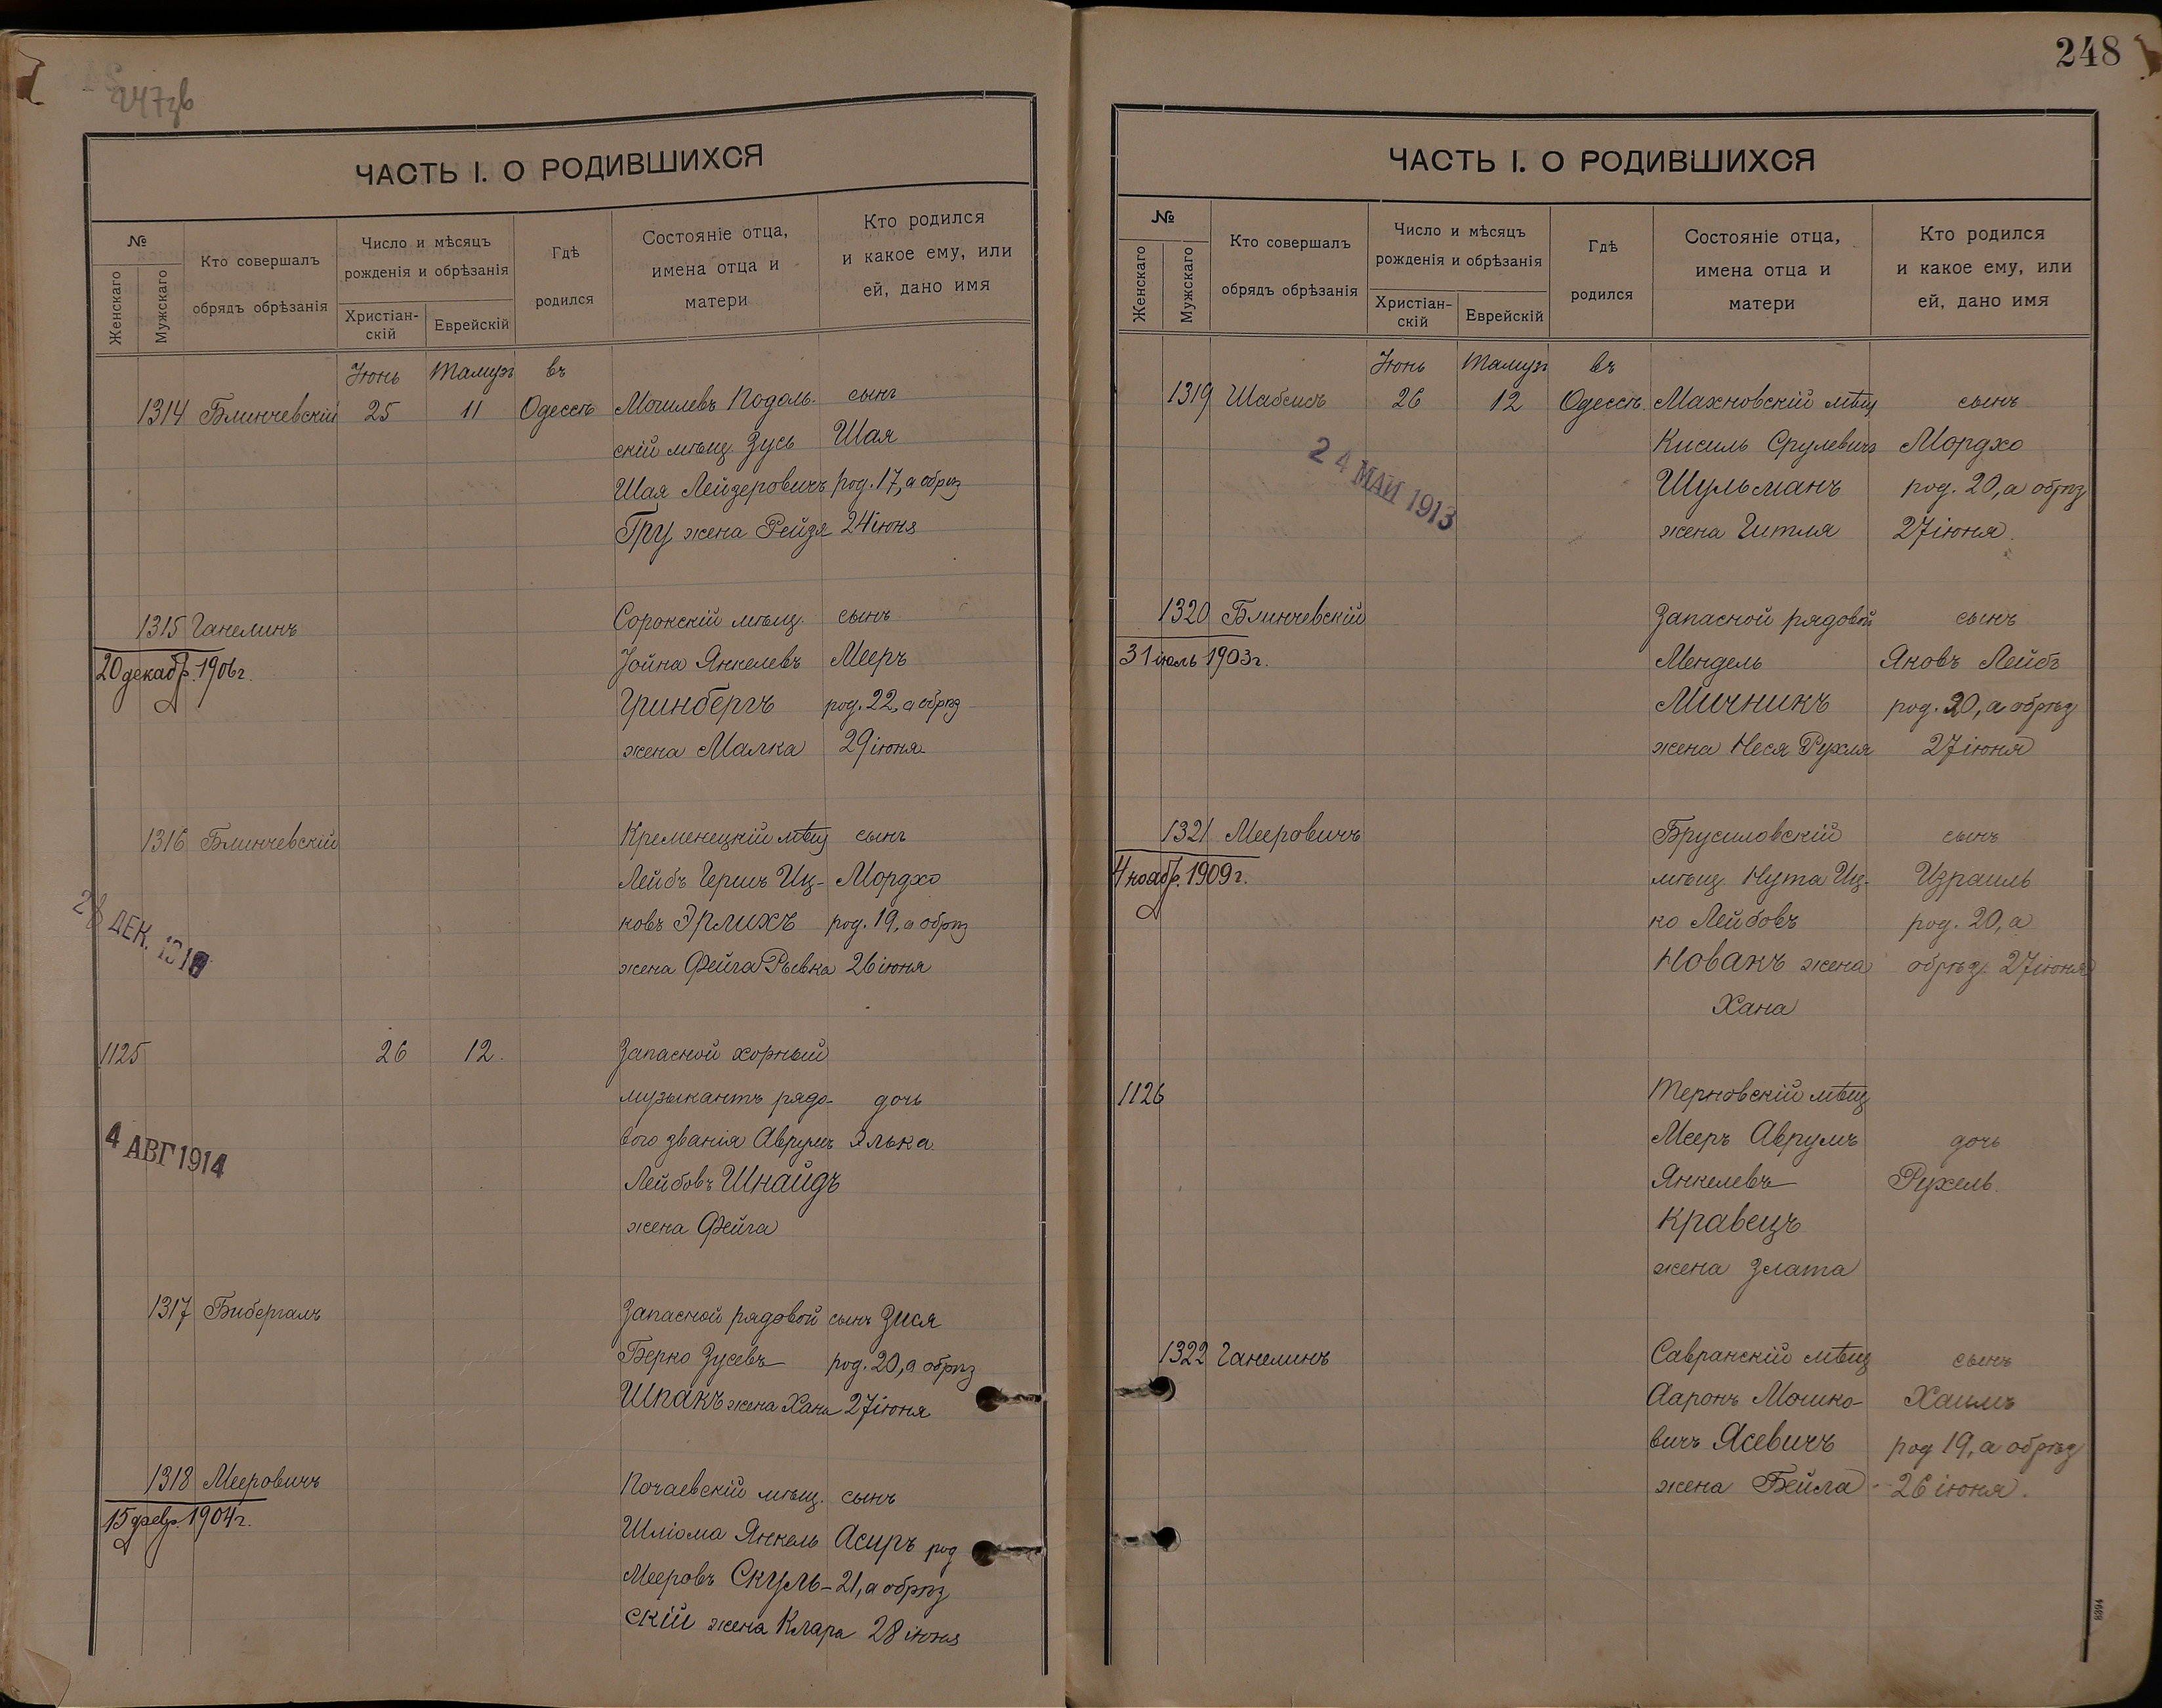 247зв
ЧАСТЬ I. О РОДИВШИХСЯ
№
Женскаго
Мужскаго
Кто совершалъ
обрядъ обрѣзанія
Число и мѣсяцъ
рожденія и обрѣзанія
Христіан-
скій
Еврейскій
Гдѣ
родился
Состояніе отца,
имена отца и
матери
Кто родился
и какое ему, или
ей, дано имя
Іюнь Тамузъ въ
1314 Блинчевскій 25 11 Одессѣ Могилевъ Подоль- сынъ
скій мѣщ. Зусь Шая
Шая Лейзеровичъ род. 17, а обрѣз
Гру жена Рейзя 24 іюня
1315 Ганелинъ Сорокскій мѣщ. сынъ
20 декабр. 1906 г. Іойна Янкелевъ Мееръ
Гринбергъ род. 22, а обрѣз
жена Малка 29 іюня
1316 Блинчевскій Кременецкій мѣщ сынъ
Лейбъ Гершъ Иц- Мордхо
ковъ Эрлихъ род. 19, а обрѣз
жена Фейга Рывка 26 іюня
ДЕК.
1125 26 12. Запасной хорный
музыкантъ рядо- дочь
вого званія Аврумъ Элька.
Лейбовъ Шнайдъ
жена Фейга
4 АВГ 1914
1317 Бибергалъ Запасной рядовой сынъ Зися
Берко Зусевъ род. 20, а обрѣз
Шпакъ жена Хана 27 іюня
1318 Мееровичъ Почаевскій мѣщ. сынъ
15 февр. 1904 г. Шліома Янкель Асиръ род
Мееровъ Скуль- 21, а обрѣз
скій жена Клара 28 іюня
248
ЧАСТЬ I. О РОДИВШИХСЯ
№
Женскаго
Мужскаго
Кто совершалъ
обрядъ обрѣзанія
Число и мѣсяцъ
рожденія и обрѣзанія
Христіан-
скій
Еврейскій
Гдѣ
родился
Состояніе отца,
имена отца и
матери
Кто родился
и какое ему, или
ей, дано имя
Іюнь Тамузъ въ
1319 Шабсисъ 26 12 Одессѣ. Махновскій мѣщ сынъ
Кисиль Срулевичъ Мордхо
Шульманъ род. 20, а обрѣз
жена Гитля 27 іюня.
24 МАЙ 1913
1320 Блинчевскій Запасной рядовой сынъ
31 іюль 1903 г. Мендель Яковъ Лейбъ
Мичникъ род. 20, а обрѣз
жена Неся Рухля 27 іюня
1321 Мееровичъ Брусиловскій сынъ
4 ноябр. 1909 г. мѣщ. Нута Иц- Израиль
ко Лейбовъ род. 20, а
Новакъ жена обрѣз. 27 іюня
Хана
1126 Терновскій мѣщ
Мееръ Аврумъ дочь
Янкелевъ Рухель.
Кравецъ
жена Злата
1322 Ганелинъ Савранскій мѣщ сынъ
Ааронъ Мошко- Хаимъ
вичъ Ясевичъ род 19, а обрѣз
жена Бейла 26 іюня.
8394